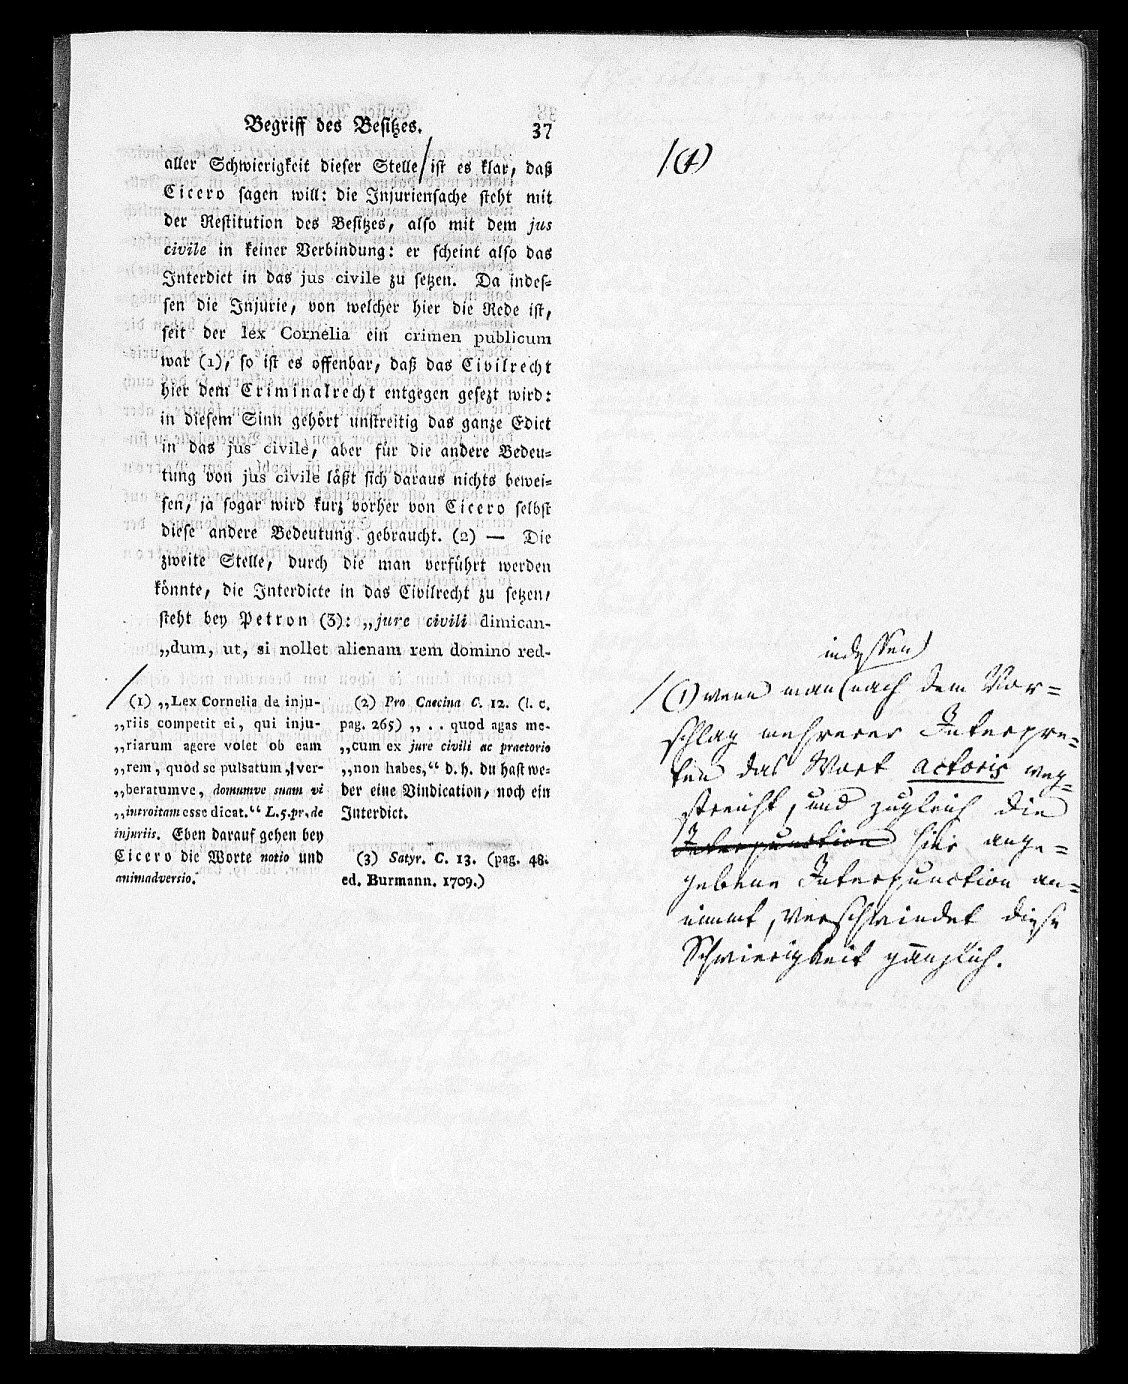 Begriff des Besitzes. 37
aller Schwierigkeit dieser Stelle / ist es klar, daß
Cicero sagen will: die Injuriensache steht mit
der Restitution des Besitzes, also mit dem jus
civile in keiner Verbindung: er scheint also das
Interdict in das jus civile zu setzen. Da indes-
sen die Injurie, von welcher hier die Rede ist,
seit der lex Cornelia ein crimen publicum
war (1), so ist es offenbar, daß das Civilrecht
hier dem Criminalrecht entgegen gesezt wird:
in diesem Sinn gehört unstreitig das ganze Edict
in das jus civile, aber für die andere Bedeu-
tung von jus civile läßt sich daraus nichts bewei-
sen, ja sogar wird kurz vorher von Cicero selbst
diese andere Bedeutung gebraucht. (2) — Die
zweite Stelle, durch die man verführt werden
könnte, die Interdicte in das Civilrecht zu setzen,
steht bey Petron (3): „jure civili dimican-
„dum, ut, si nollet alienam rem domino red-
/ (1) „Lex Cornelia de inju-
„riis competit ei, qui inju-
„riarum agere volet ob eam
„rem, quod se pulsatum, ver-
„beratumve, domumve suam vi
„introitam esse dicat.“ L. 5. pr. de
injuriis. Eben darauf gehen bey
Cicero die Worte notio und
animadversio.
(2) Pro Caecina C. 12. (l. c.
pag. 265) „ . . quod agas me-
„cum ex jure civili ac praetorio
„non habes,“ d. h. du hast we-
der eine Vindication, noch ein
Interdict.
(3) Satyr. C. 13. (pag. 48.
ed. Burmann. 1709.)
/ (1)
indessen
/ (1) wenn man nach dem Vor=
schlag mehrerer Interpre=
ten das Wort actoris weg=
streicht, und zugleich die
Interpunction hier ange=
gebene Interpunction an=
nimmt, verschwindet diese
Schwierigkeit gänzlich.